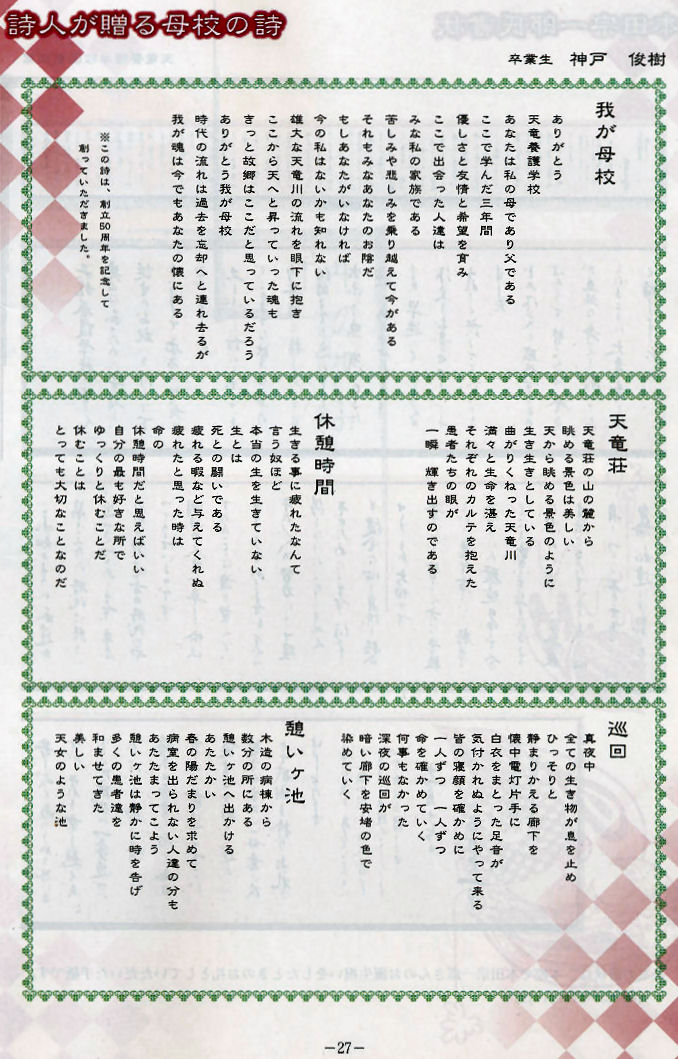 詩人が贈る母校の詩
卒業生　神戸　俊樹
我が母校
ありがとう
天竜養護学校
あなたは私の母であり父である
ここで学んだ三年間
優しさと友情と希望を育み
ここで出会った人達は
みな私の家族である
苦しみや悲しみを乗り越えて今がある
それもみなあなたのお陰だ
もしあなたがいなければ
今の私はないかも知れない
雄大な天竜川の流れを眼下に抱き
ここから天へと昇っていった魂も
きっと故郷はここだと思っているだろう
ありがとう我が母校
時代の流れは過去を忘却へと連れ去るが
我が魂は今でもあなたの懐にある
※この詩は、創立50周年を記念して
創っていただきました。
天竜荘
天竜荘の山の麓から
眺める景色は美しい
天から眺める景色のように
生き生きとしている
曲がりくねった天竜川
満々と生命を湛え
それぞれのカルテを抱えた
患者たちの眼が
一瞬　輝き出すのである
休憩時間
生きる事に疲れたなんて
言う奴ほど
本当の生を生きていない
生とは
死との闘いである
疲れる暇など与えてくれぬ
疲れたと思った時は
命の
休憩時間だと思えばいい
自分の最も好きな所で
ゆっくりと休むことだ
休むことは
とっても大切なことなのだ
巡回
真夜中
全ての生き物が息を止め
ひっそりと
静まりかえる廊下を
懐中電灯片手に
白衣をまとった足音が
気付かれぬようにやって来る
皆の寝顔を確かめに
一人ずつ　一人ずつ
命を確かめていく
何事もなかった
深夜の巡回が
暗い廊下を安堵の色で
染めていく
憩いヶ池
木造の病棟から
数分の所にある
憩いヶ池へ出かける
あたたかい
春の陽だまりを求めて
病室を出られない人達の分も
あたたまってこよう
憩いヶ池は静かに時を告げ
多くの患者達を
和ませてきた
美しい
天女のような池
－27－